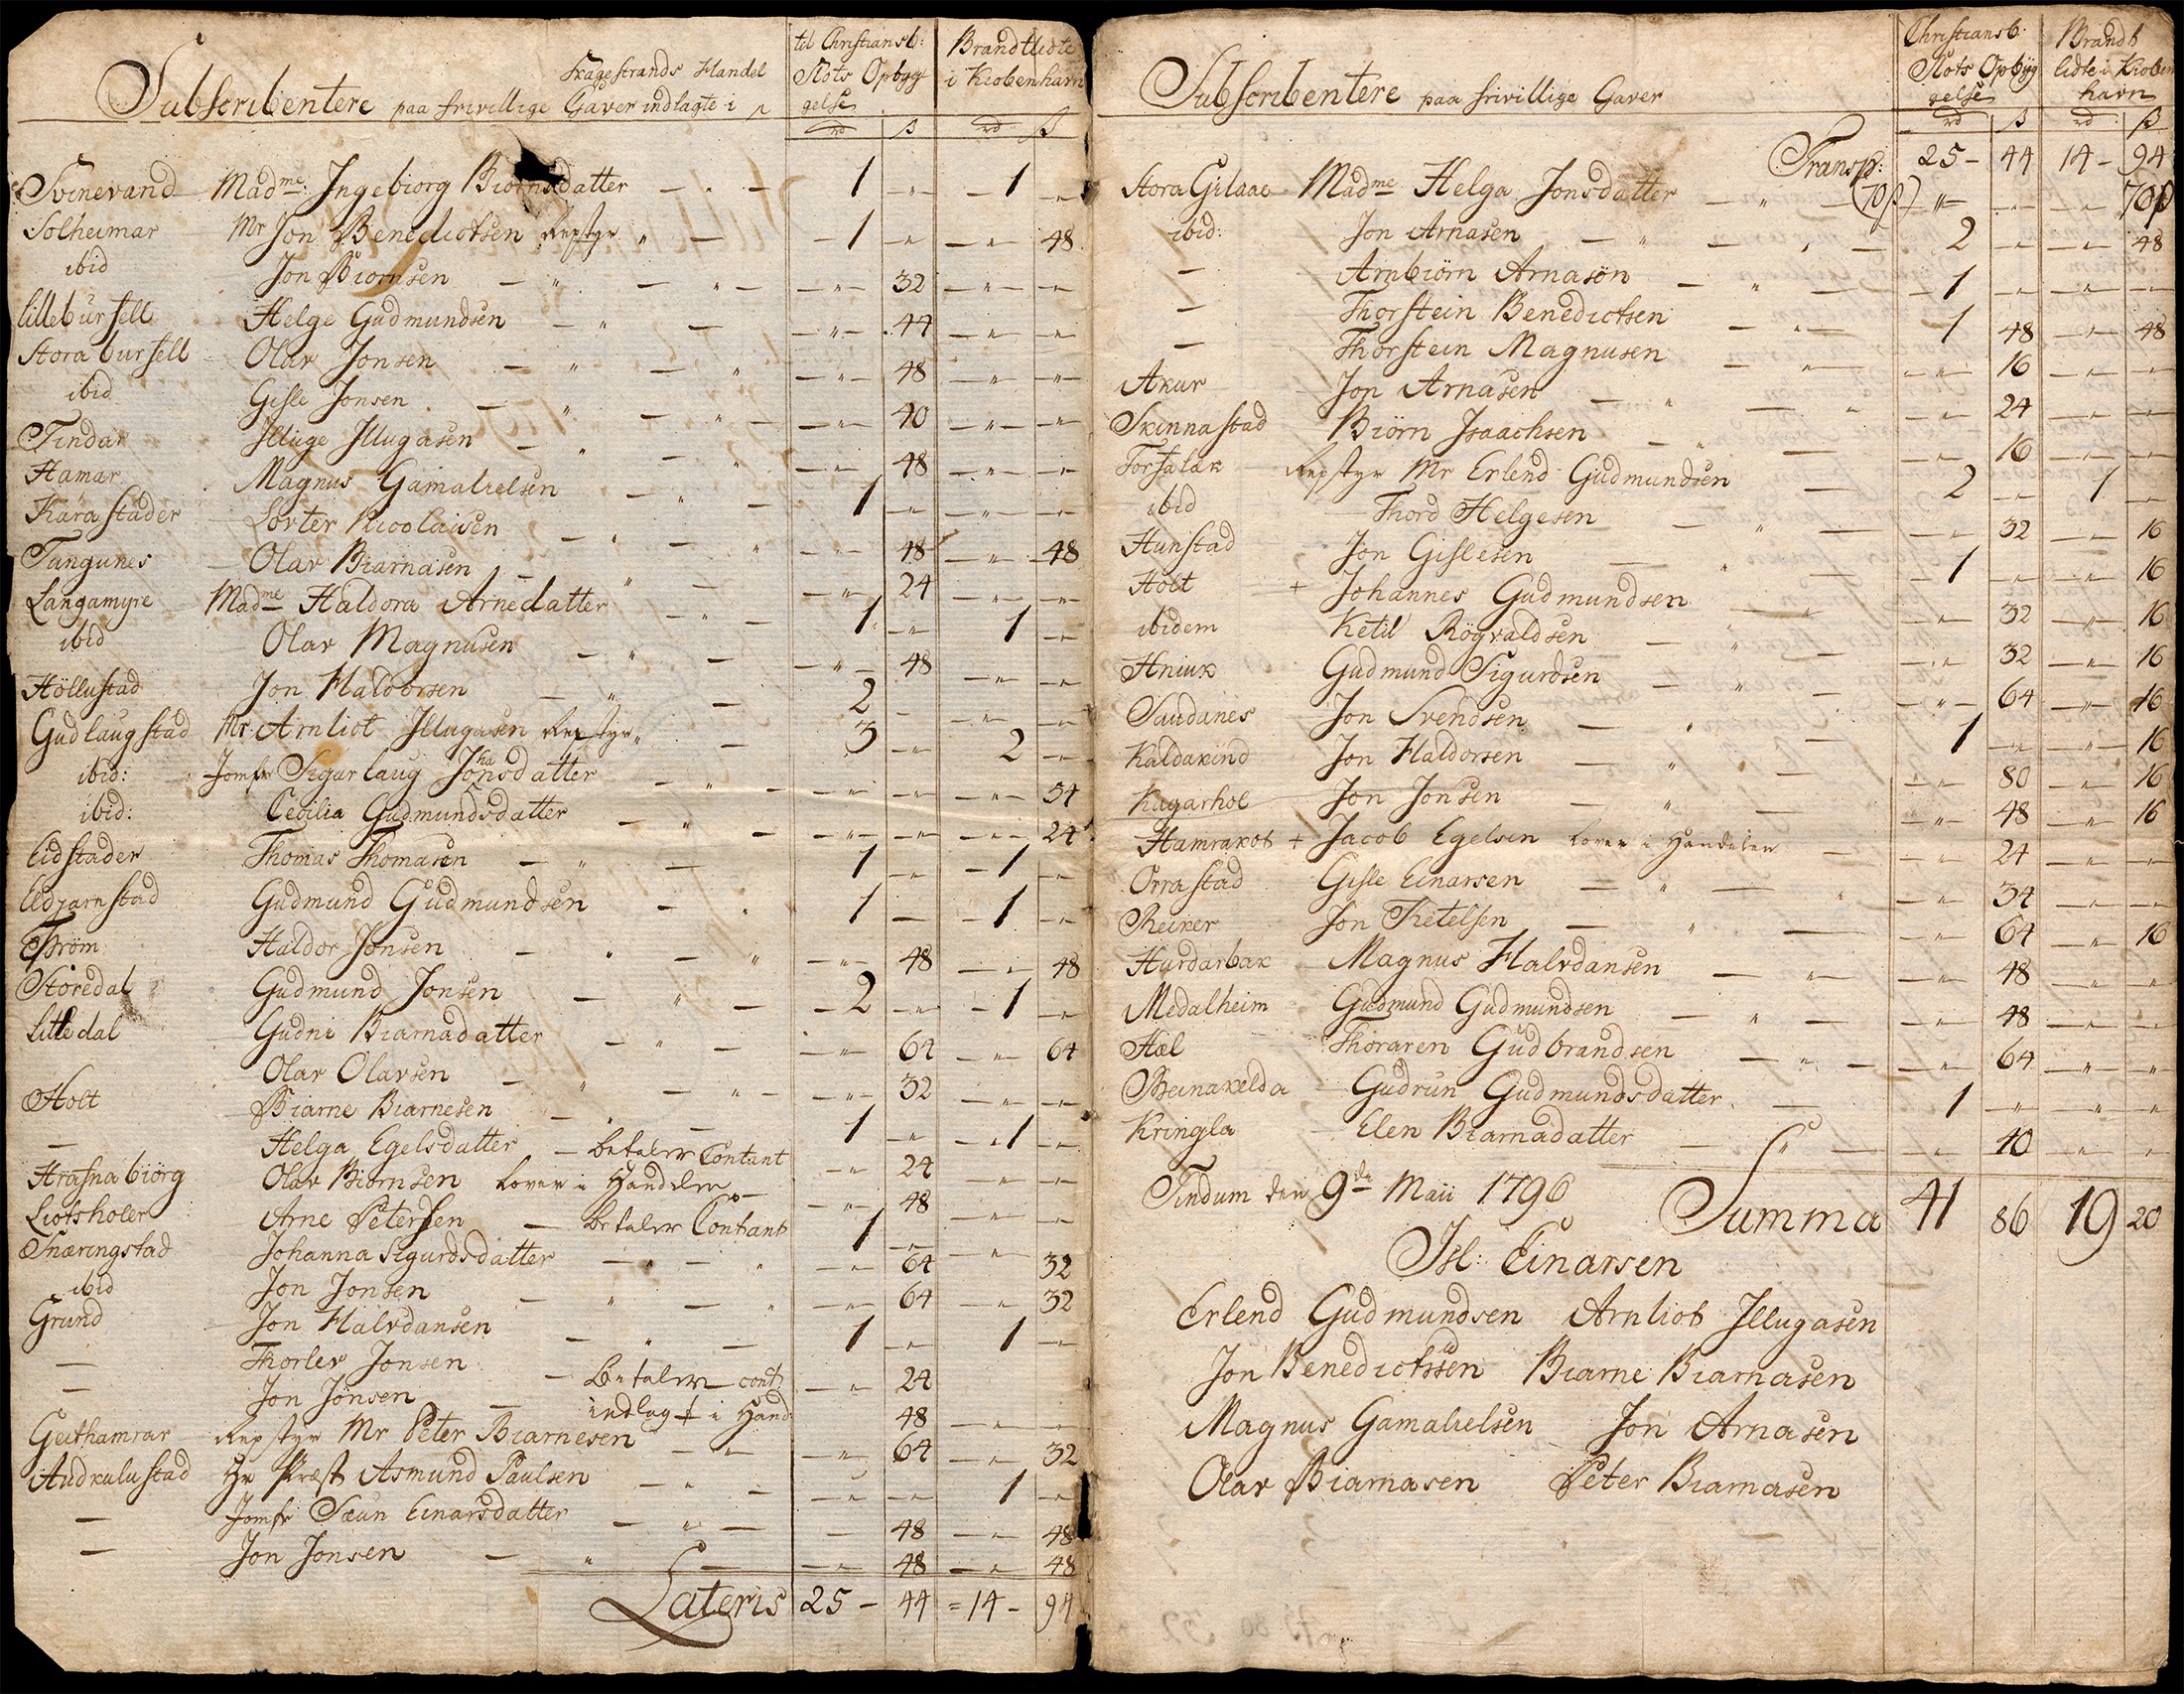 Subscribentere paa frivillige Gaver indlagte i Skagestrands Handel
til Christiansb: Slots Opbyggelse
Brandtlidte i Kiobenhavn
rd ß rd ß
Svinevand Madme: Ingebiorg Biornsdatter 1 1
Solheimar Mr Jon Benedictsen Repstyr 1 48
ibid Jon Biornsen 32
Lilleburfell Helge Gudmundsen 44
Storaburfell Olav Jonsen 48
ibid Gisle Jonsen 40
Tindar Illuge Illugasen 48
Hamar Magnus Gamalielsen 1
Kárastader Lovter Nicolaisen 48 48
Tangunes Olav Biarnasen 24
Langamyre Madme Haldora Arnedatter 1 1
ibid Olav Magnusen 48
Höllustad Jon Haldorsen 2
Gudlaugstad Mr Arnliot Illugasen Repstyr 3 2
ibid: Jomfr Sigurlaug Jonsdatter 34
ibid: Cecilia Gudmundsdatter 24
Eidstader Thomas Thomasen 1 1
Eldjarnstad Gudmund Gudmundsen 1 1
Þröm Haldor Jonsen 48 48
Storedal Gudmund Jonsen 2 1
Litledal Gudni Biarnadatter 64 64
Olav Olavsen 32
Holt Biarne Biarnesen 1 1
— Helga Egelsdatter — betaler Contant 24
Hrafnabiörg Olav Biornsen lover i Handelen 48
Liotsholer Arne Petersen — betaler Contant 1
Snæringstad Johanna Sigurdsdatter 64 32
ibid Jon Jonsen 64 32
Grund Jon Halvdansen 1 1
— Thorlev Jonsen — Betaler cont: 24
— Jon Jonsen — indlagt i Hand 48
Geithamrar Repstyr Mr Peter Biarnesen 64 32
Audkulustad Hr Præst Asmund Paulsen 1
— Jomfr Sæun Einarsdatter 48 48
— Jon Jonsen 48 48
Lateris 25 — 44 = 14 — 94
Subscribentere paa frivillige Gaver
Christiansb: Slots Opbyggelse
Brandtlidte i Kiobenhavn
rd ß rd ß
Transp: 25 — 44 14 — 94
Stora Gilaae Madme Helga Jonsdatter (70ß) 70ß
ibid: Jon Arnasen 2 48
— Arnbiörn Arnasön 1
— Thorstein Benedictsen 1 48 48
— Thorstein Magnusen 16
Akur Jon Arnasen 24
Skinnastad Biörn Isaachsen 16
Torfalæk Repstyr Mr Erlend Gudmundsen 2 1
ibid Thord Helgesen 32 16
Hunstad Jon Gislesen 1 16
Holt + Johannes Gudmundsen 32 16
ibidem Ketil Rögvaldsen 32 16
Hniuk Gudmund Sigurdsen 64 16
Saudanes Jon Svendsen 1 16
Kaldakind Jon Haldorsen 80 16
Kagarhol Jon Jonsen 48 16
Hamrakot + Jacob Egelsen lover i Handelen 24
Orrastad Gisle Einarsen 34
Reiker Jon Ketelsen 64 16
Hurdarbak Magnus Halvdansen 48
Medalheim Gudmund Gudmundsen 48
Hæl Thoraren Gudbrandsen 64
Beinakelda Gudrun Gudmundsdatter 1
Kringla Elen Biarnadatter 40
Tindum den 9de Maii 1796 Summa 41 86 19 20
Isl: Einarsen
Erlend Gudmundsen Arnliot Illugasen
Jon Benedictssen Biarne Biarnasen
Magnus Gamalielsen Jon Arnasen
Olav Biarnasen Peter Biarnasen